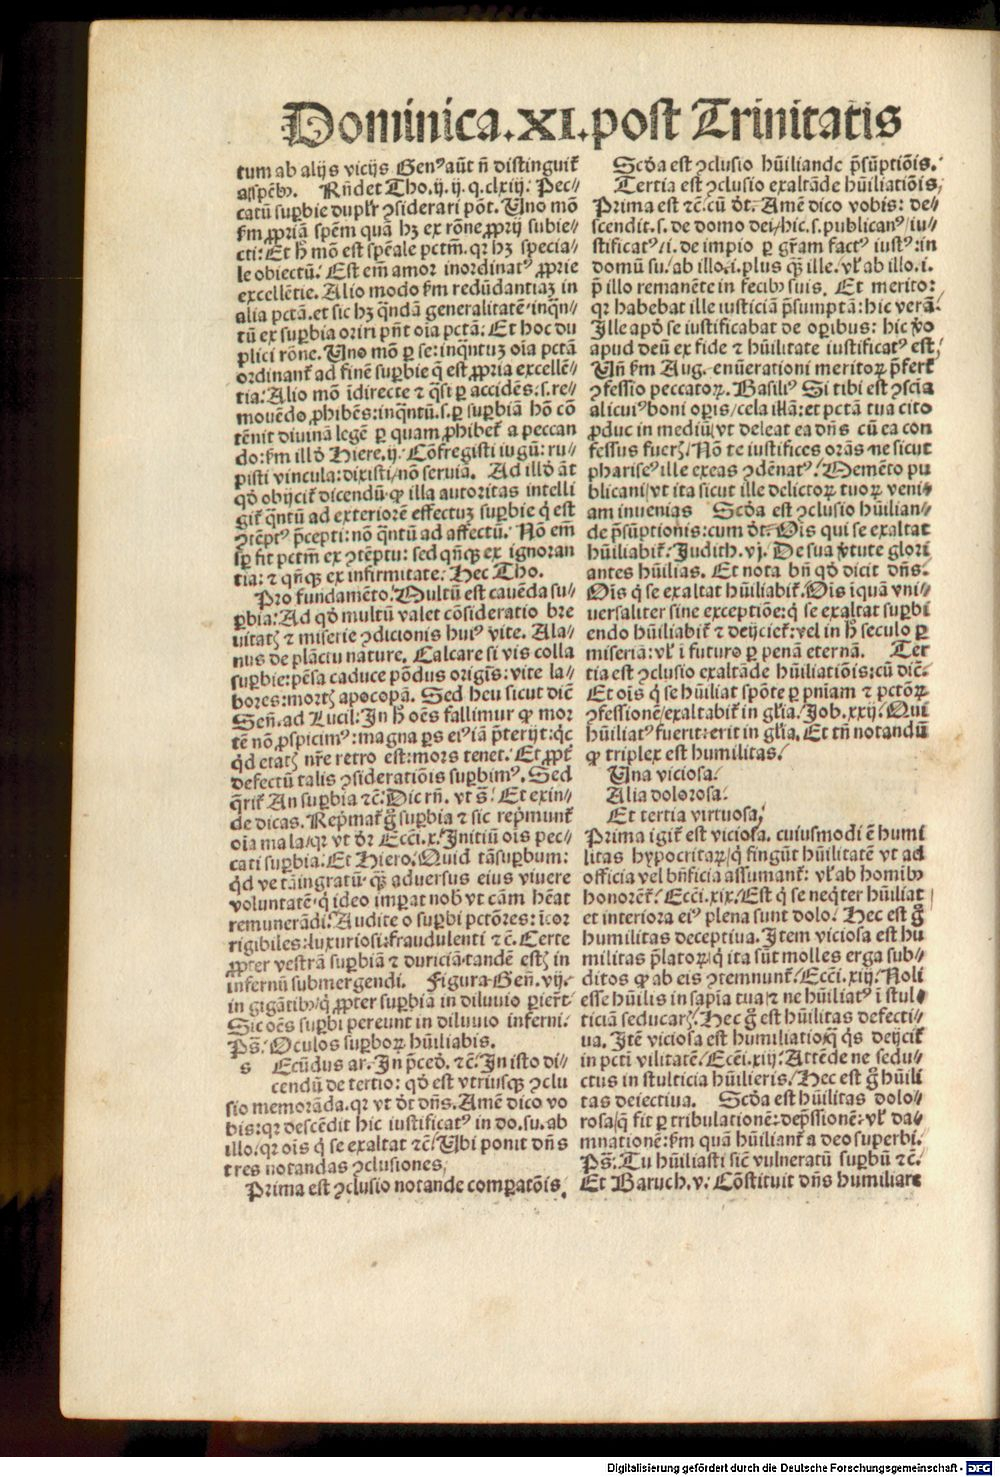 Dominica.XI.post Trinitatis
tum ab alijs vicijs Genꝰ aūt n̄ distinguit̄
a spēbꝫ. Rn̄det Tho.ij.ij.q.clxij: Pec⸗
catū suꝑbie dupl̄r ꝯsiderari pōt. Uno mō
ẜm ꝓpriā spēm quā hꝫ ex rōne ꝓprij subie⸗
cti: Et h̄ mō est spēale pctm̄. qꝛ hꝫ specia⸗
le obiectū: Est em̄ amor inordinatꝰ ꝓprie
excellētie. Alio modo ẜm redūdantiaꝫ in
alia pctā. et sic hꝫ qn̄dā generalitatē inqn̄⸗
tū ex suꝑbia oriri pn̄t oīa pctā: Et hoc du
plici rōne. Uno mō ꝑ se: inqn̄tuꝫ oīa pctā
ordinant̄ ad finē suꝑbie q̄ est ꝓpria excellē⸗
tia: Alio mō īdirecte ⁊ q̄si ꝑ accidēs: s. re⸗
mouēdo ꝓhibēs: inqn̄tū. s. ꝑ suꝑbiā hō cō
tēnit diuinā legē ꝑ quam ꝓhibet̄ a peccan
do: ẜm illd̄ Hiere.ij. Cōfregisti iugū: ru⸗
pisti vincula: dixisti / nō seruiā. Ad illd̄ āt
qd̄ obijcit̄ dicendū ꝙ illa autoritas intelli
git̄ qn̄tū ad exteriorē effectuꝫ suꝑbie q̄ est
ꝯtēptꝰ p̄cepti: nō qn̄tū ad affectū. Nō em̄
sꝑ fit pctm̄ ex ꝯtēptu: sed qn̄qꝫ ex ignoran
tia: ⁊ qn̄qꝫ ex infirmitate: Hec Tho.
Pro fundamēto. Multū est cauēda su⸗
ꝑbia: Ad qd̄ multū valet cōsideratio bre
uitatꝭ ⁊ miserie ꝯdicionis huiꝰ vite. Ala⸗
nus de plāctu nature. Calcare si vis colla
suꝑbie: pēsa caduce pōdus origīs: vite la⸗
bores: mortꝭ apocopā. Sed heu sicut dic̄
Sen̄. ad Lucil: In h̄ oēs fallimur ꝙ mor
tē nō ꝓspicimꝰ: magna ꝑs eiꝰ iā p̄terijt: qc̄
qd̄ etatꝭ nr̄e retro est: mors tenet: Et ꝓpt̄
defectū talis ꝯsideratiōis suꝑbimꝰ. Sed
q̄rit̄ An suꝑbia ⁊c̄: Dic rn̄. vt s̄: Et exin⸗
de dicas. Rep̄mat̄ g̊ suꝑbia ⁊ sic rep̄munt̄
oīa mala / qꝛ vt dr̄ Ecci̅.x. Initiū oīs pec⸗
cati suꝑbia: Et Hiero. Quid tā suꝑbum:
qd̄ ve tā ingratū qꝫ̄ aduersus eius viuere
voluntatē q̇ ideo imꝑat nob̄ vt cām hēat
remunerādi: Audite o suꝑbi pctōres: īcor
rigibiles: luxuriosi: fraudulenti ⁊c̄. Certe
ꝓpter vestrā suꝑbiā ⁊ duriciā tandē estꝭ in
infernū submergendi. Figura Gen̄.vij.
in gigātibꝫ / q̇ ꝓpter suꝑbiā in diluuio ꝑier̄t
Sic oēs suꝑbi pereunt in diluuio inferni:
Ps̄. Oculos suꝑboꝝ hūiliabis.
s Ecūdus ar. In p̄ced̄. ⁊c̄. In isto di⸗
cendū de tertio: qd̄ est vtriusqꝫ ꝯclu
sio memorāda. qꝛ vt d̄t dn̄s. Amē dico vo
bis: qꝛ descēdit hic iustificatꝰ in do. su. ab
illo: qꝛ oīs q̇ se exaltat ⁊c̄: Ubi ponit dn̄s
tres notandas ꝯclusiones,
Prima est ꝯclusio notande comꝑatōis.
Scd̄a est ꝯclusio hūiliande p̄sūptiōis.
Tertia est ꝯclusio exaltāde hūiliatiōis,
Prima est ⁊c̄: cū d̄t. Amē dico vobis: de⸗
scendit. s. de domo dei / hic. s. publicanꝰ / iu⸗
stificatꝰ / i. de impio ꝑ gr̄am factꝰ iustꝰ: in
domū su. ab illo. i. plus qꝫ̄ ille. vl̄ ab illo. i.
p̄ illo remanēte in ẜcibꝫ suis. Et merito:
qꝛ habebat ille iusticiā p̄sumptā: hic verā.
Ille apd̄ se iustificabat de oꝑibus: hic v̊o
apud deū ex fide ⁊ hūilitate iustificatꝰ est,
Un̄ ẜm Aug. enūerationi meritoꝝ p̄fert̄
ꝯfessio peccatoꝝ. Basiliꝰ Si tibi est ꝯscīa
alicuiꝰ boni oꝑis / cela illā: et pctā tua cito
ꝓduc in mediū / vt deleat ea dn̄s cū ea con
fessus fuerꝭ / Nō te iustifices orās ne sicut
phariseꝰ ille exeas ꝯdēnatꝰ / Memēto pu
blicani / vt ita sicut ille delictoꝝ tuoꝝ veni⸗
am inuenias Scd̄a est ꝯclusio hūilian⸗
de p̄sūptionis: cum d̄t. Oīs qui se exaltat
hūiliabit̄. Judith.vj. De sua v̊tute glori
antes hūilias. Et nota bn̄ qd̄ dicit dn̄s.
Oīs q̇ se exaltat hūiliabit̄. Oīs īquā vni⸗
uersaliter sine exceptiōe: q̇ se exaltat suꝑbi
endo hūiliabit̄ ⁊ deijciet̄: vel in h̄ seculo ꝑ
miseriā: vl̄ ī futuro ꝑ penā eternā. Ter
tia est ꝯclusio exaltāde hūiliatiōis: cū dic̄.
Et oīs q̇ se hūiliat spōte ꝑ pn̄iam ⁊ pctōꝝ
ꝯfessionē / exaltabit̄ in gl̄ia. Job.xxij. Qui
hūiliatꝰ fuerit: erit in gl̄ia. Et tn̄ notandū
ꝙ triplex est humilitas.
Una viciosa.
Alia dolorosa.
Et tertia virtuosa,
Prima igit̄ est viciosa. cuiusmodi ē humi
litas hypocritaꝝ / q̇ fingūt hūilitatē vt ad
officia vel bn̄ficia assumant̄: vl̄ ab homībꝫ
honorēt̄. Ecci̅.xix. Est q̇ se neqter hūiliat
et interiora eiꝰ plena sunt dolo. Hec est g̊
humilitas deceptiua. Item viciosa est hu
militas p̄latoꝝ / q̇ ita sūt molles erga sub⸗
ditos ꝙ ab eis ꝯtemnunt̄. Ecci̅.xiij. Noli
esse hūilis in sapīa tua / ⁊ ne hūiliatꝰ ī stul
ticiā seducarꝭ. Hec g̊ est hūilitas defecti⸗
ua. Itē viciosa est humiliatio / q̄ q̇s deijcit̄
in pcti vilitatē. Ecci̅.xiij. Attēde ne sedu⸗
ctus in stulticia hūilieris. Hec est g̊ hūili
tas deiectiua. Scd̄a est hūilitas dolo⸗
rosa / q̄ fit ꝑ tribulationē: dep̄ssionē: vl̄ da⸗
mnationē: ẜm quā hūiliant̄ a deo superbi.
Ps̄. Tu hūiliasti sic̄ vulneratū suꝑbū ⁊c̄.
Et Baruch.v. Cōstituit dn̄s humiliare
Digitalisierung gefördert durch die Deutsche Forschungsgemeinschaft - DFG